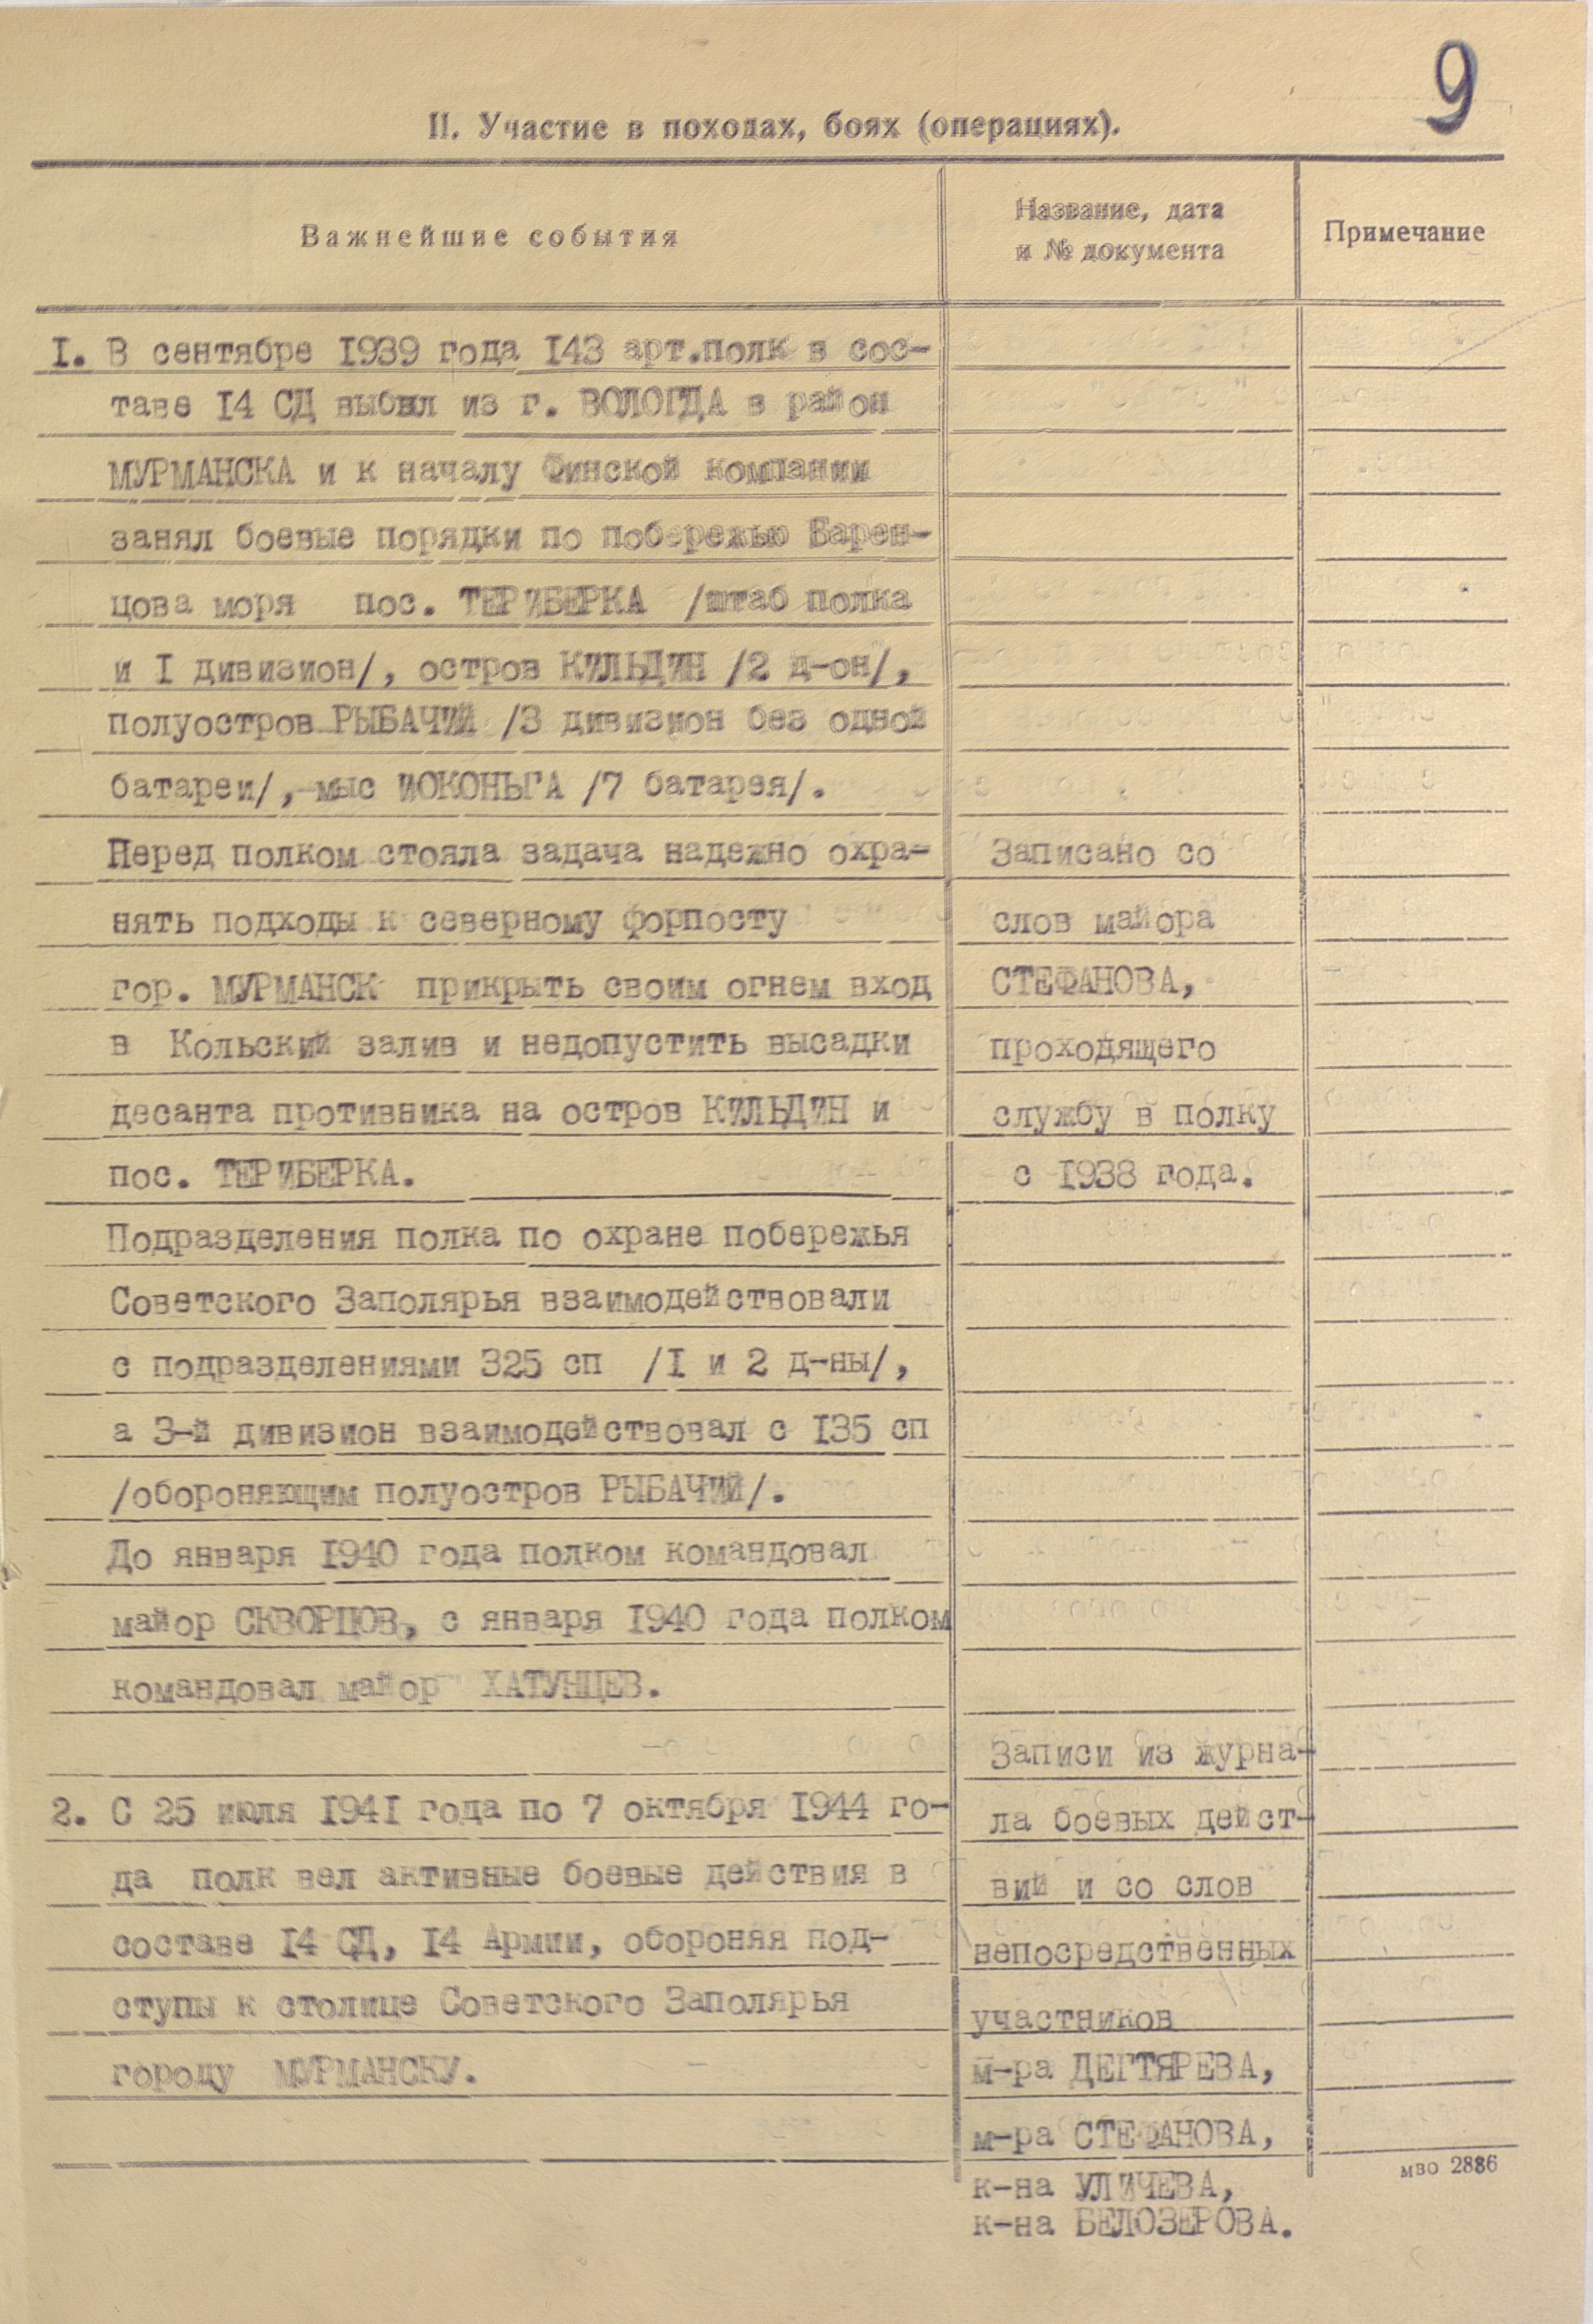 9
II. Участие в походах, боях (операциях).
Важнейшие события
Название, дата
и № документа
Примечание
I. В сентябре I939 года I43 арт.полк в сос-
таве I4 СД выбыл из г. ВОЛОГДА в район
МУРМАНСКА и к началу Финской компании
занял боевые порядки по побережью Барен-
цова моря пос. ТЕРИБЕРКА /штаб полка
и I дивизион/, остров КИЛЬДИН /2 д-он/,
полуостров РЫБАЧИЙ /3 дивизион без одной
батареи/,-мыс ИОКОНЬГА /7 батарея/.
Перед полком стояла задача надежно охра-
нять подходы к северному форпосту
гор. МУРМАНСК прикрыть своим огнем вход
в Кольский залив и недопустить высадки
десанта противника на остров КИЛЬДИН и
пос. ТЕРИБЕРКА.
Подразделения полка по охране побережья
Советского Заполярья взаимодействовали
с подразделениями 325 сп /I и 2 д-ны/,
а 3-й дивизион взаимодействовал с I35 сп
/обороняющим полуостров РЫБАЧИЙ/.
До января I940 года полком командовал
майор СКВОРЦОВ, с января I940 года полком
командовал майор ХАТУНЦЕВ.
2. С 25 июля I94I года по 7 октября I944 го-
да полк вел активные боевые действия в
составе I4 СД, I4 Армии, обороняя под-
ступы к столице Советского Заполярья
городу МУРМАНСКУ.
Записано со
слов майора
СТЕФАНОВА,
проходящего
службу в полку
с I938 года.
Записи из журна-
ла боевых дейст-
вий и со слов
непосредственных
участников
м-ра ДЕГТЯРЕВА,
м-ра СТЕФАНОВА,
к-на УЛИЧЕВА,
к-на БЕЛОЗЕРОВА.
МВО 2886